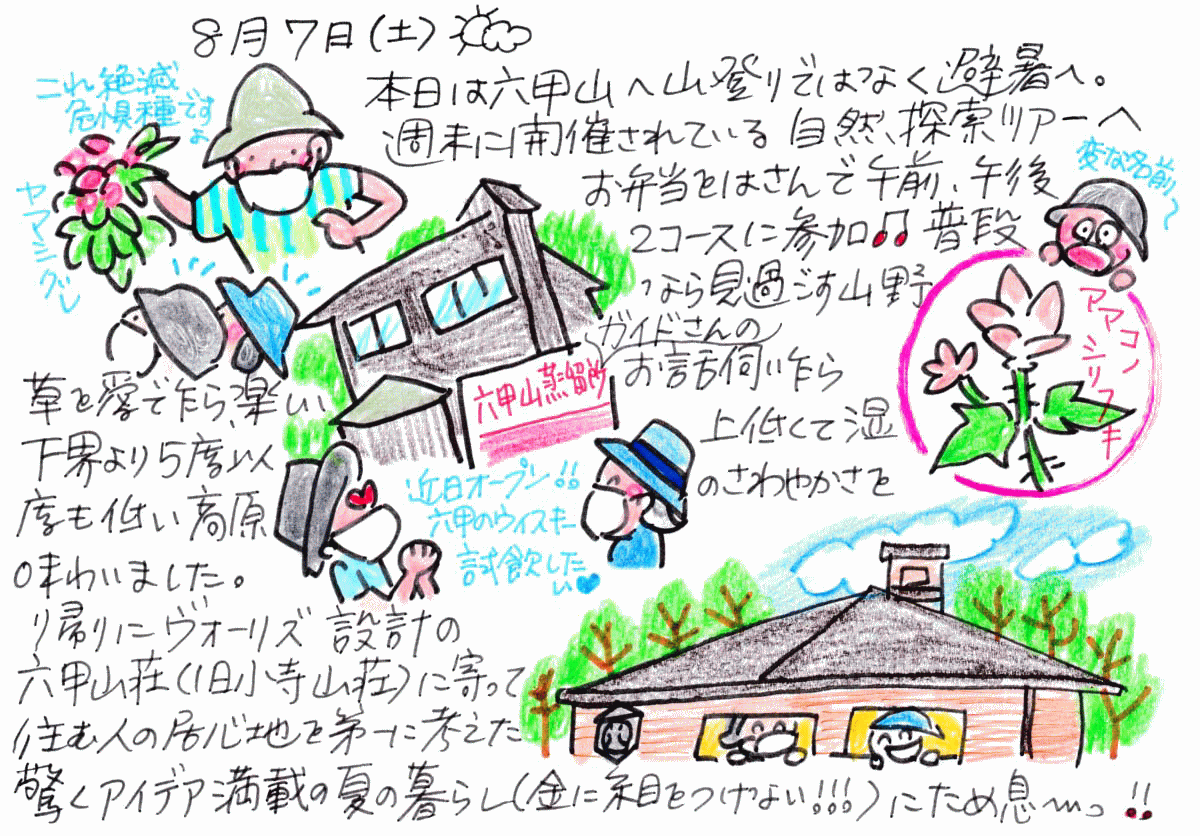 8月7日(土)
これ絶滅
危惧種ですょ
ヤマシグレ
本日は六甲山へ山登りではなく避暑へ。
週末に開催されている自然探索ツアーへ
お弁当をはさんで午前、午後
2コースに参加♫普段
なら見過ごす山野
草を愛でたら、楽しい
ガイドさんの
お話伺いたら
下界より5度以
上低くて湿
度も低い高原
のさわやかさを
味わいました。
変な名前〜
ママコノ
シリヌグイ
六甲山蒸留所
近日オープン!!
六甲のウィスキー
試飲した
い
帰りにヴォーリズ設計の
六甲山荘(旧小寺山荘)に寄って
住む人の居心地を第一に考えた
驚くアイデア満載の夏の暮らし(金に糸目をつけない!!!)にため息〜っ!!